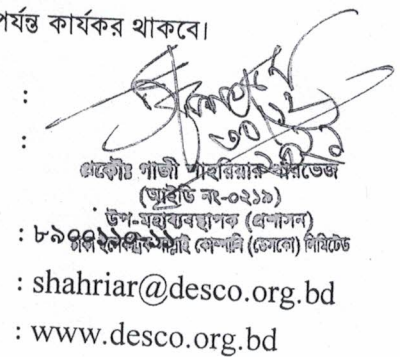 পর্যন্ত কার্যকর থাকবে।
:
:
প্রকৌঃ গাজী শাহরিয়ার পারভেজ
(আইডি নং-০২১৯)
উপ-মহাব্যবস্থাপক (প্রশাসন)
: ৮৯০০
ঢাকা ইলেকট্রিক সাপ্লাই কোম্পানি (ডেসকো) লিমিটেড
: shahriar@desco.org.bd
: www.desco.org.bd